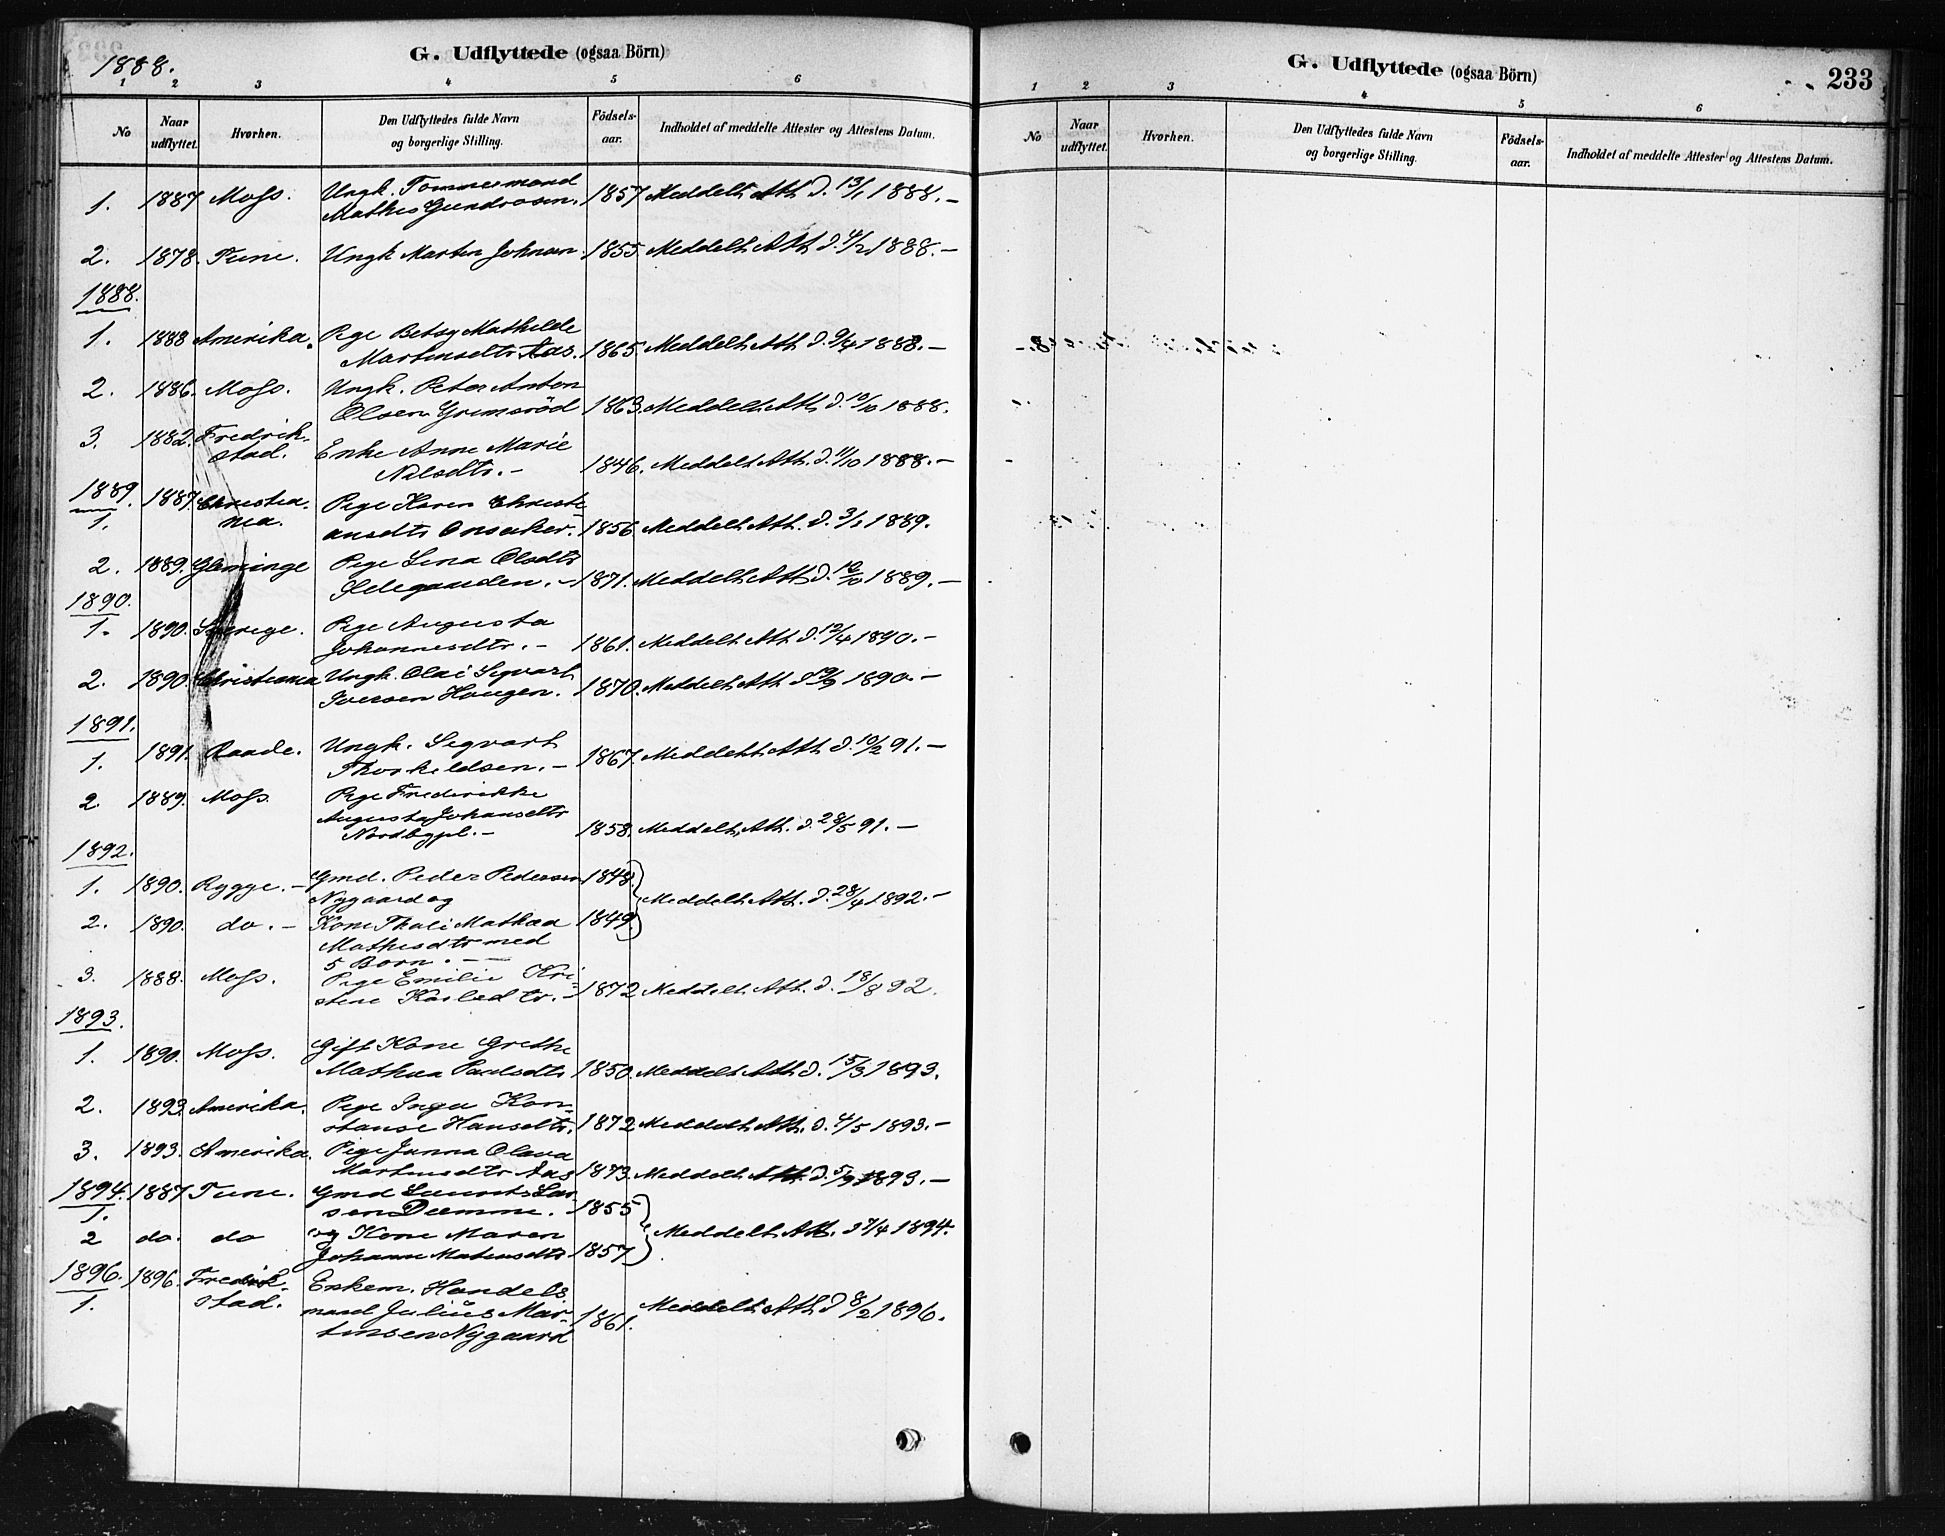 1888.
G. Udflyttede (ogsaa Börn)
1 2 3 4 5 6
No Naar udflyttet. Hvorhen. Den Udflyttedes fulde Navn og borgerlige Stilling. Födsels-aar. Indholdet af meddelte Attester og Attestens Datum.
1. 1887 Moss. Ungk. Tømmermand 1857 Meddelt Att. d. 13/1 1888. –
Mathis Gundrosen.
2. 1878. Tune. Ungk Martin Johnsen 1855 Meddelt Att d. 4/2 1888. –
1888.
1. 1888 Amerika. Pge Betsy Mathilde
Martinsdtr Aas. 1865. Meddelt Att d. 9/4 1888. –
2. 1886. Moss. Ungk. Peter Anton
Olsen Grimsrød 1863. Meddelt Att d. 10/10 1888.
3. 1882. Fredrik- Enke Anne Marie
stad. Nilsdtr. – 1846. Meddelt Att. d. 11/10 1888. –
1889. 1887. Christia- Pge Karen Christi-
1. nia. ansdtr Onsaker. 1856 Meddelt Att. d. 3/1 1889.
2. 1889. Glemminge Pge Lina Olsdtr
Ødegaarden. – 1871. Meddelt Att d. 12/10 1889. –
1890.
1. 1890. Sverige. Pge Augusta
Johannesdtr. – 1861. Meddelt Att d. 12/4 1890. –
2. 1890. Christiania Ungk. Olai Sigvart
Iversen Haugen. 1870. Meddelt Att d 19/9 1890. –
1891.
1. 1891. Raade. Ungk. Sigvart
Thorkildsen. – 1867. Meddelt Att d. 10/2 91. –
2. 1889. Moss. Pge Fredrikke
Augusta Johansdtr
Nordbypl. – 1858. Meddelt Att. d. 28/5 91. –
1892.
1. 1890. Rygge. – Gmd. Peder Pedersen 1848.
Nygaard og Meddelt Att. d. 28/4 1892. –
2. 1890. do. – Kone Thale Mathea 1849.
Mathisdtr med
5 Børn. –
3. 1888. Moss. Pge Emilie Kri-
stine Karlsdtr. – 1872 Meddelt Att. d. 18/8 92.
1893.
1. 1890. Moss. Gift Kone Grethe
Mathea Paulsdtr 1850. Meddelt Att d. 15/3 1893.
2. 1893. Amerika. Pge Inga Kon-
stanse Hansdtr. 1872 Meddelt Att. d. 4/5 1893. –
3. 1893. Amerika. Pige Janna Olava
Martinsdtr Aas 1873. Meddelt Att. d. 5/9 1893. –
1894. 1887 Tune. Gmd Laurits Lar-
1. sen Dæmme. 1855
2 do. do og Kone Maren Meddelt Att. d 7/4 1894.
Johanne Matensdtr 1857
1896. 1896. Fredrik- Enkem. Handels-
1. stad. mand Julius Mar- 1861. Meddelt Att d 8/2 1896.
tinsen Nygaard
G. Udflyttede (ogsaa Börn)
233
1 2 3 4 5 6
No Naar udflyttet. Hvorhen. Den Udflyttedes fulde Navn og borgerlige Stilling. Födsels-aar. Indholdet af meddelte Attester og Attestens Datum.